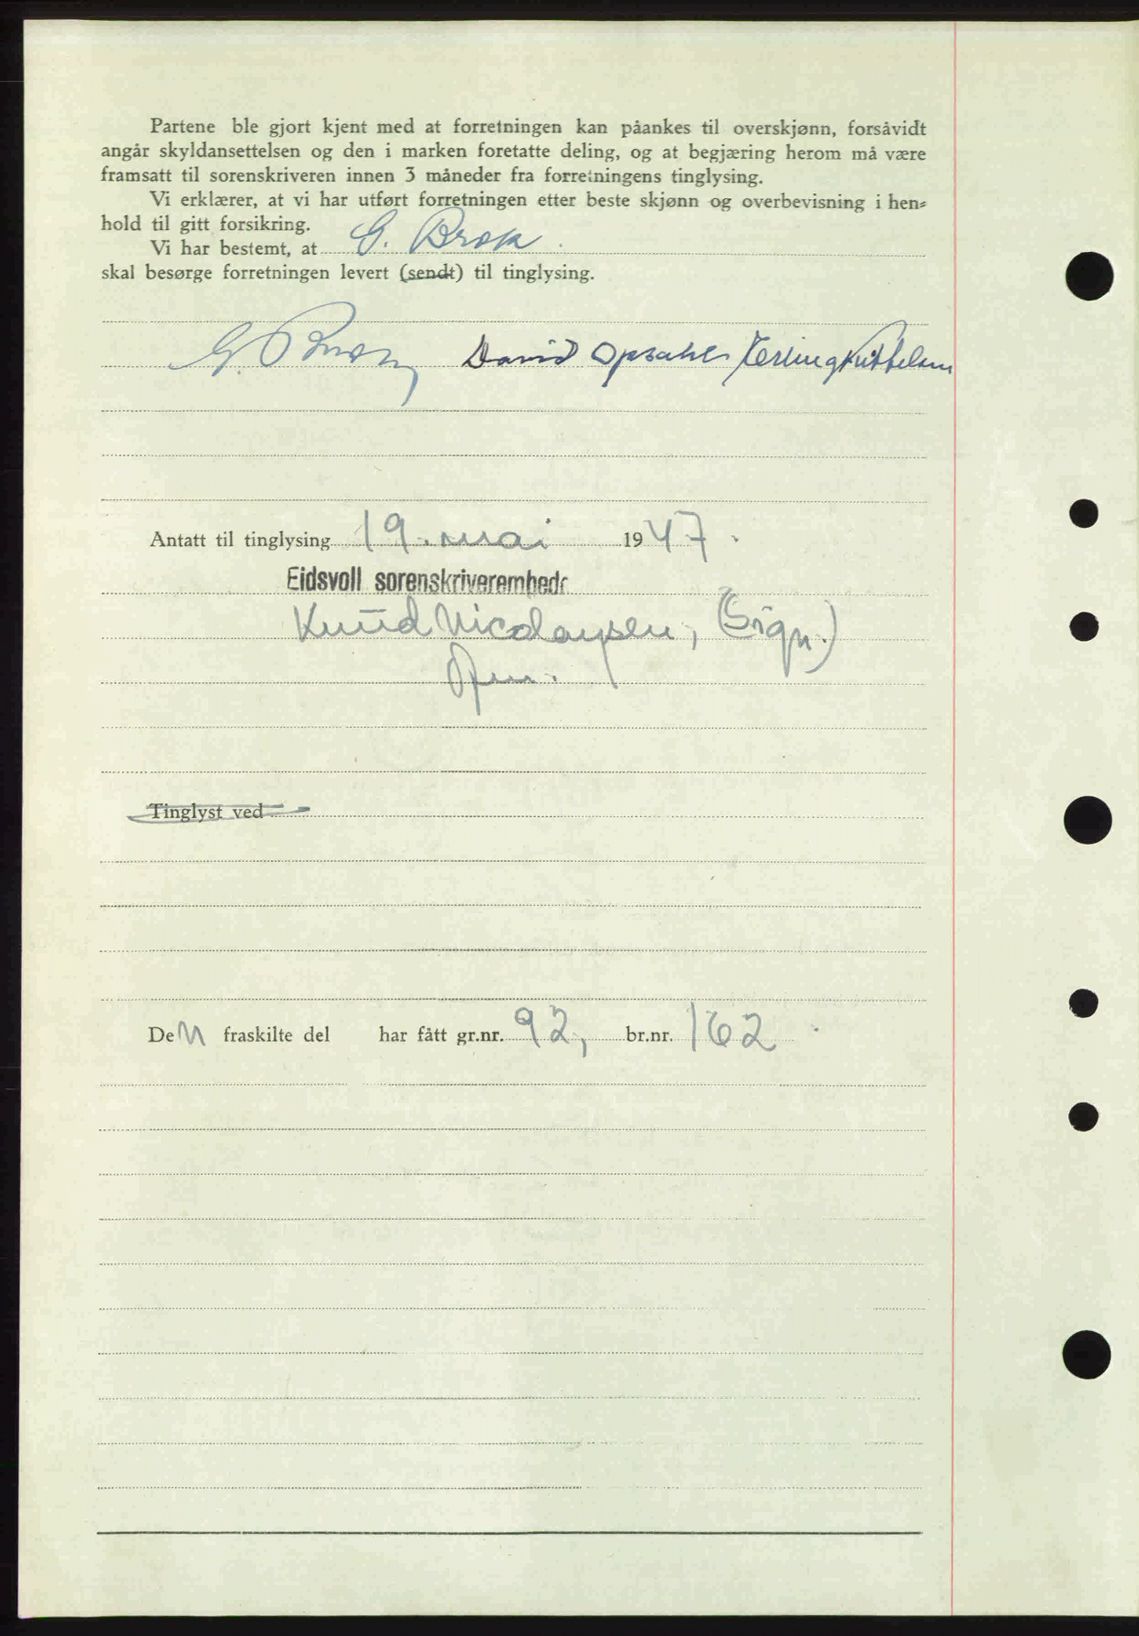 Partene ble gjort kjent med at forretningen kan påankes til overskjønn, forsåvidt
angår skyldansettelsen og den i marken foretatte deling, og at begjæring herom må være
framsatt til sorenskriveren innen 3 måneder fra forretningens tinglysing.
Vi erklærer, at vi har utført forretningen etter beste skjønn og overbevisning i hen=
hold til gitt forsikring.
Vi har bestemt, at G. Brok
skal besørge forretningen levert (sendt) til tinglysing.
G. Brok David Opsahl Erling Kittelsen
Antatt til tinglysing 19. mai 1947.
Eidsvoll sorenskriverembede
Knud Nicolaysen, (Sign.)
Den fraskilte del har fått gr.nr. 92, br.nr. 162
Tinglyst ved